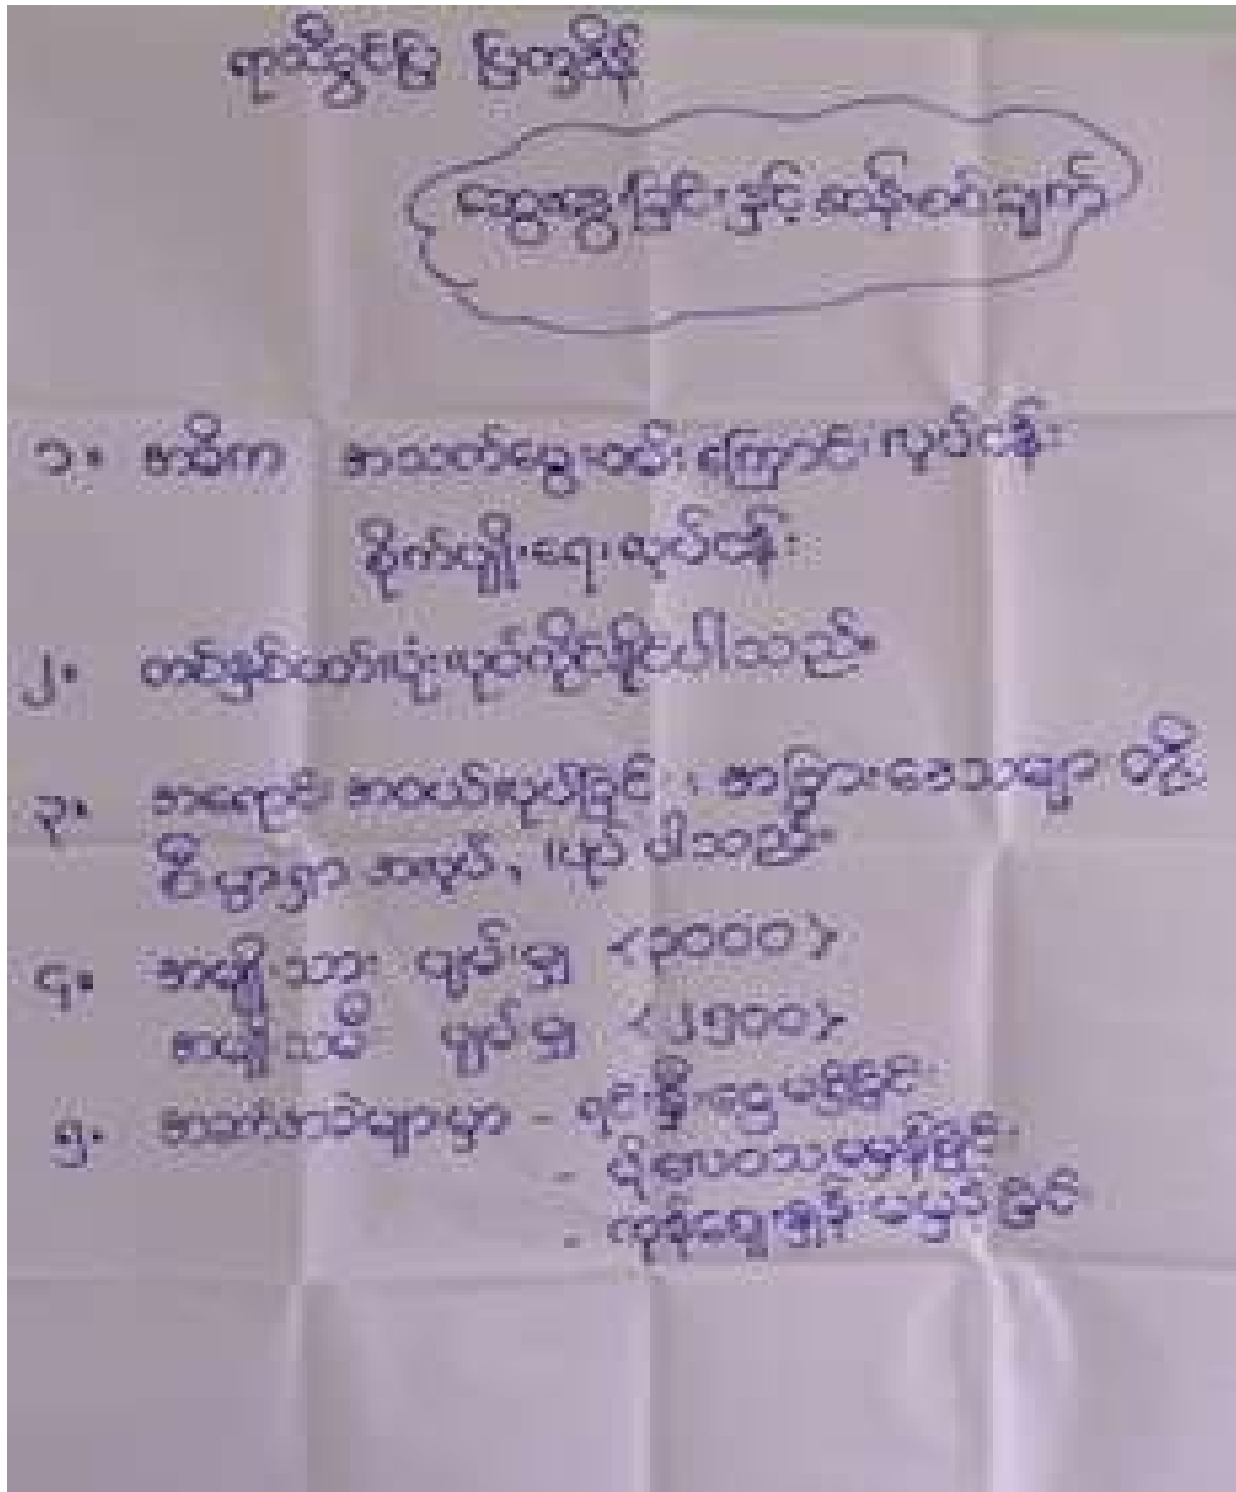 ရာသီခွင်ပြ ပြက္ခဒိန်
ဆွေးနွေးခြင်းနှင့် ဆန်းစစ်ချက်
၁။ အဓိက အသက်မွေးဝမ်းကြောင်းလုပ်ငန်း
စိုက်ပျိုးရေးလုပ်ငန်း
၂။ တစ်နှစ်ပတ်လုံးလုပ်ကိုင်နိုင်ပါသည်။
၃။ အရောင်းအဝယ်လုပ်ခြင်း၊ အခြားဒေသများ
စီးပွားရှာ အလုပ် လုပ်ပါသည်။
၄။ အမျိုးသား ပျမ်းမျှ <၃၀၀၀>
အမျိုးသမီး ပျမ်းမျှ <၂၅၀၀>
၅။ အခက်အခဲများမှာ - ရင်းနှီးငွေ မရှိခြင်း
- ရာသီဥတု မမှန်ခြင်း
- ကုန်ဈေးနှုန်း မမှန်ခြင်း